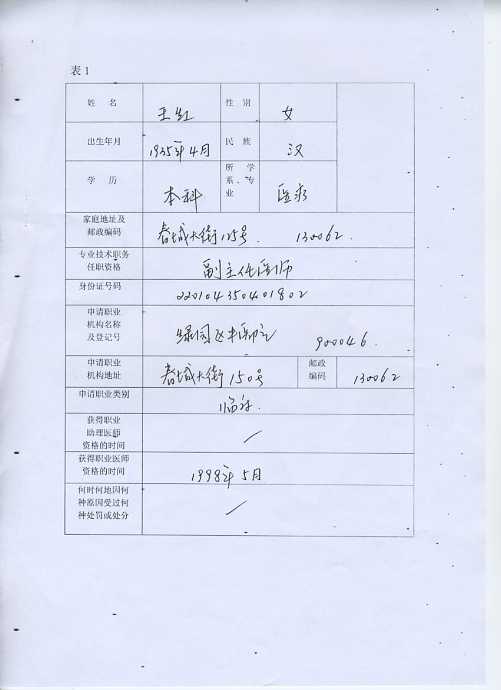 表1
姓 名 王红 性 别 女
出生年月 1935年4月 民 族 汉
学 历 本科 所 学
系、专
业 医疗
家庭地址及
邮政编码 春城大街125号. 130062.
专业技术职务
任职资格 副主任医师
身份证号码 220104350401802
申请职业
机构名称
及登记号 绿园区 900046.
申请职业
机构地址 春城大街150号 邮政
编码 130062
申请职业类别 临床.
获得职业
助理医师
资格的时间 /
获得职业医师
资格的时间 1998年5月
何时何地因何
种原因受过何
种处罚或处分 /